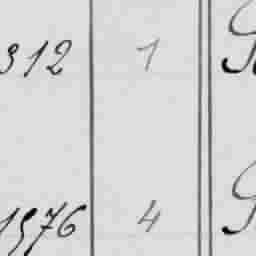 312 1
1576 4